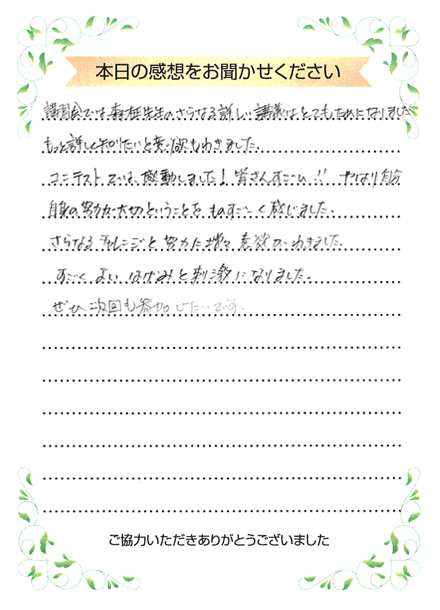 本日の感想をお聞かせください
講習会では森在先生のさらなる詳しい講義はとてもためになりました
もっと詳しく知りたいと意欲もわきました。
コンテストでは、感動しました！皆さんすごい!! やはり自分
自身の努力が大切ということをものすごーく感じました。
さらなるチャレンジと努力に増々意欲がわきました。
すごくよいはげみと刺激になりました。
ぜひ次回も参加したいです。
ご協力いただきありがとうございました